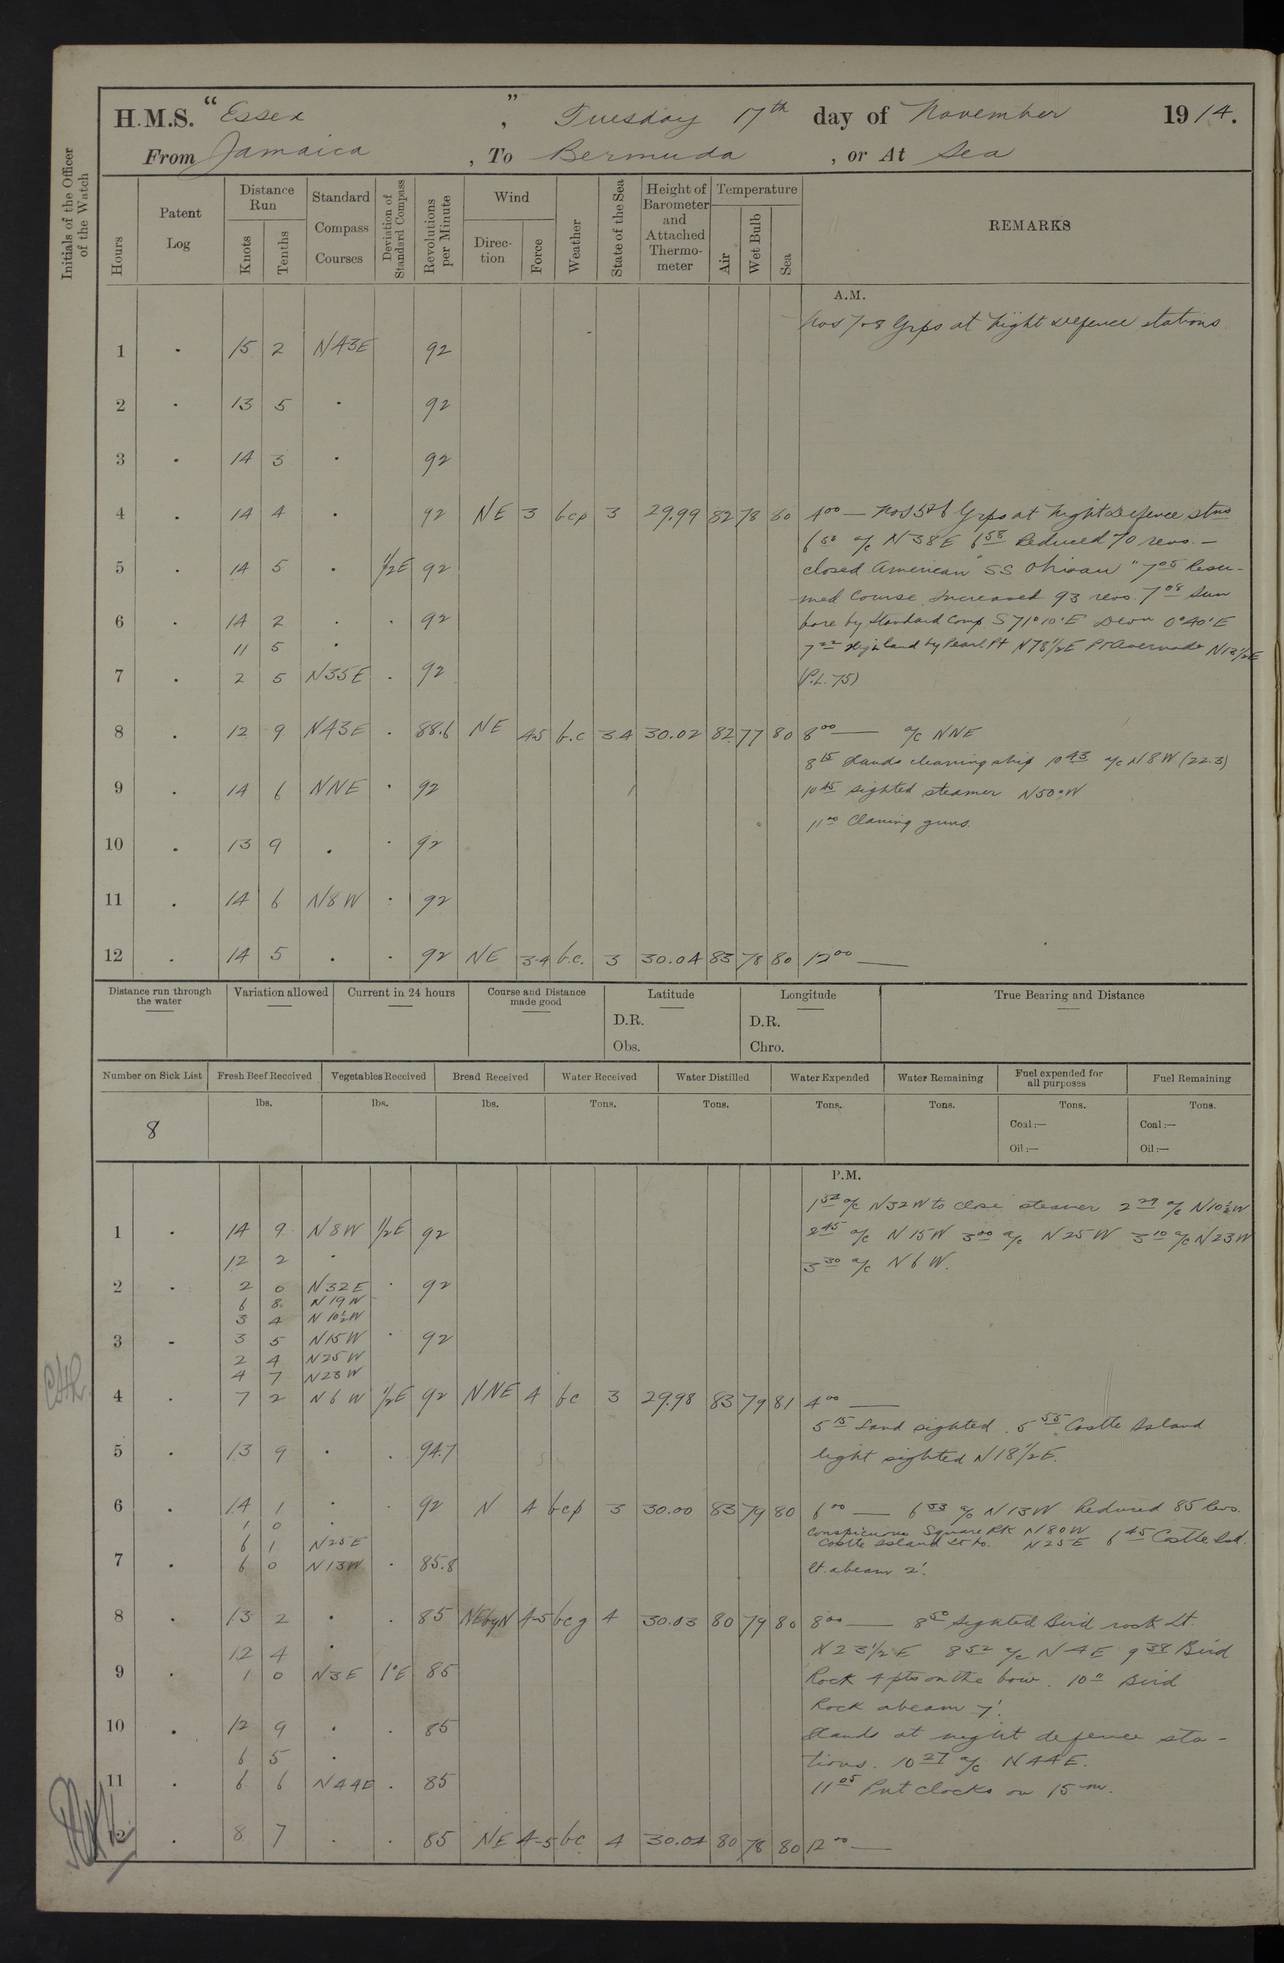 H.M.S. "Essex", Tuesday 17th day of November 1914.
From Jamaica, To Bermuda, or At Sea
Initials of the Officer of the Watch
Hours
Patent Log
Distance Run
Knots
Tenths
Standard Compass Courses
Deviation of Standard Compass
Revolutions per Minute
Wind
Direction
Force
Weather
State of the Sea
Height of Barometer and Attached Thermometer
Temperature
Air
Wet Bulb
Sea
REMARKS
A.M.
Nos 7 & 8 Grps at Night Defence stations
1 . 15 2 N43E 92
2 . 13 5 . 92
3 . 14 3 . 92
4 . 14 4 . 92 NE 3 bcp 3 29.99 82 78 80 4 00 — Nos 5 & 6 Grps at Night Defence stns
6 50 a/c N38E 6 58 Reduced 70 revs. —
5 . 14 5 . 1/2E 92 closed American "SS Ohioan" 7 05 Resu-
med Course. Increased 93 revs. 7 08 Sun
6 . 14 2 . . 92 bore by Standard Comp S71°10'E Devn 0°40'E
11 5 .
7 . 2 5 N35E . 92 (P.L. 75)
8 . 12 9 N43E . 88.6 NE 4-5 b.c 3.4 30.02 82 77 80 8 00 — a/c NNE
8 15 Hands cleaning ship 10 43 a/c N8W (22.3)
9 . 14 6 NNE . 92 10 45 sighted steamer N50°W
11 00 Claning guns.
10 . 13 9 . . 92
11 . 14 6 N8W . 92
12 . 14 5 . . 92 NE 3-4 b.c. 3 30.04 83 78 80 12 00 —
Distance run through the water
Variation allowed
Current in 24 hours
Course and Distance made good
Latitude
D.R.
Obs.
Longitude
D.R.
Chro.
True Bearing and Distance
Number on Sick List
Fresh Beef Received
Vegetables Received
Bread Received
Water Received
Water Distilled
Water Expended
Water Remaining
Fuel expended for all purposes
Fuel Remaining
8 lbs. lbs. lbs. Tons. Tons. Tons. Tons. Tons. Tons.
Coal:— Coal:—
Oil:— Oil:—
P.M.
1 52 a/c N32W to close steamer 2 29 a/c N10½W
1 . 14 9 N8W 1/2E 92 2 45 a/c N15W 3 00 a/c N25W 3 10 a/c N23W
12 2 . 3 30 a/c N6W.
2 . 2 0 N32E . 92
6 8 N19W
3 4 N10½W
3 - 3 5 N15W . 92
2 4 N25W
4 7 N23W
4 . 7 2 N6W 1/2E 92 NNE 4 bc 3 29.98 83 79 81 4 00 —
5 15 Land sighted. 5 55 Castle Island
5 . 13 9 . . 94.7 light sighted N18 1/2E.
6 . 14 1 . . 92 N 4 bcp 3 30.00 83 79 80 6 00 — 6 33 a/c N13W Reduced 85 Revs.
1 0 . Conspicuous Square Rk N80W
6 1 N25E Castle Island Lt ho. N25E 6 45 Castle Isd.
7 . 6 0 N13W . 85.8 Lt. abeam 2'.
8 . 13 2 . . 85 NEbyN 4-5 bcg 4 30.03 80 79 80 8 00 — 8 50 Sighted Bird rock Lt.
12 4 . N23 1/2E 8 52 a/c N4E 9 38 Bird
9 . 1 0 N3E 1°E 85 Rock 4 pts on the bow. 10 11 Bird
Rock abeam 7'.
10 . 12 9 . . 85 Hands at night defence sta-
6 5 . tions. 10 27 a/c N44E.
11 . 6 6 N44E . 85 11 05 Put clocks on 15 m.
12 . 8 7 . . 85 NE 4-5 bc 4 30.04 80 78 80 12 00 —